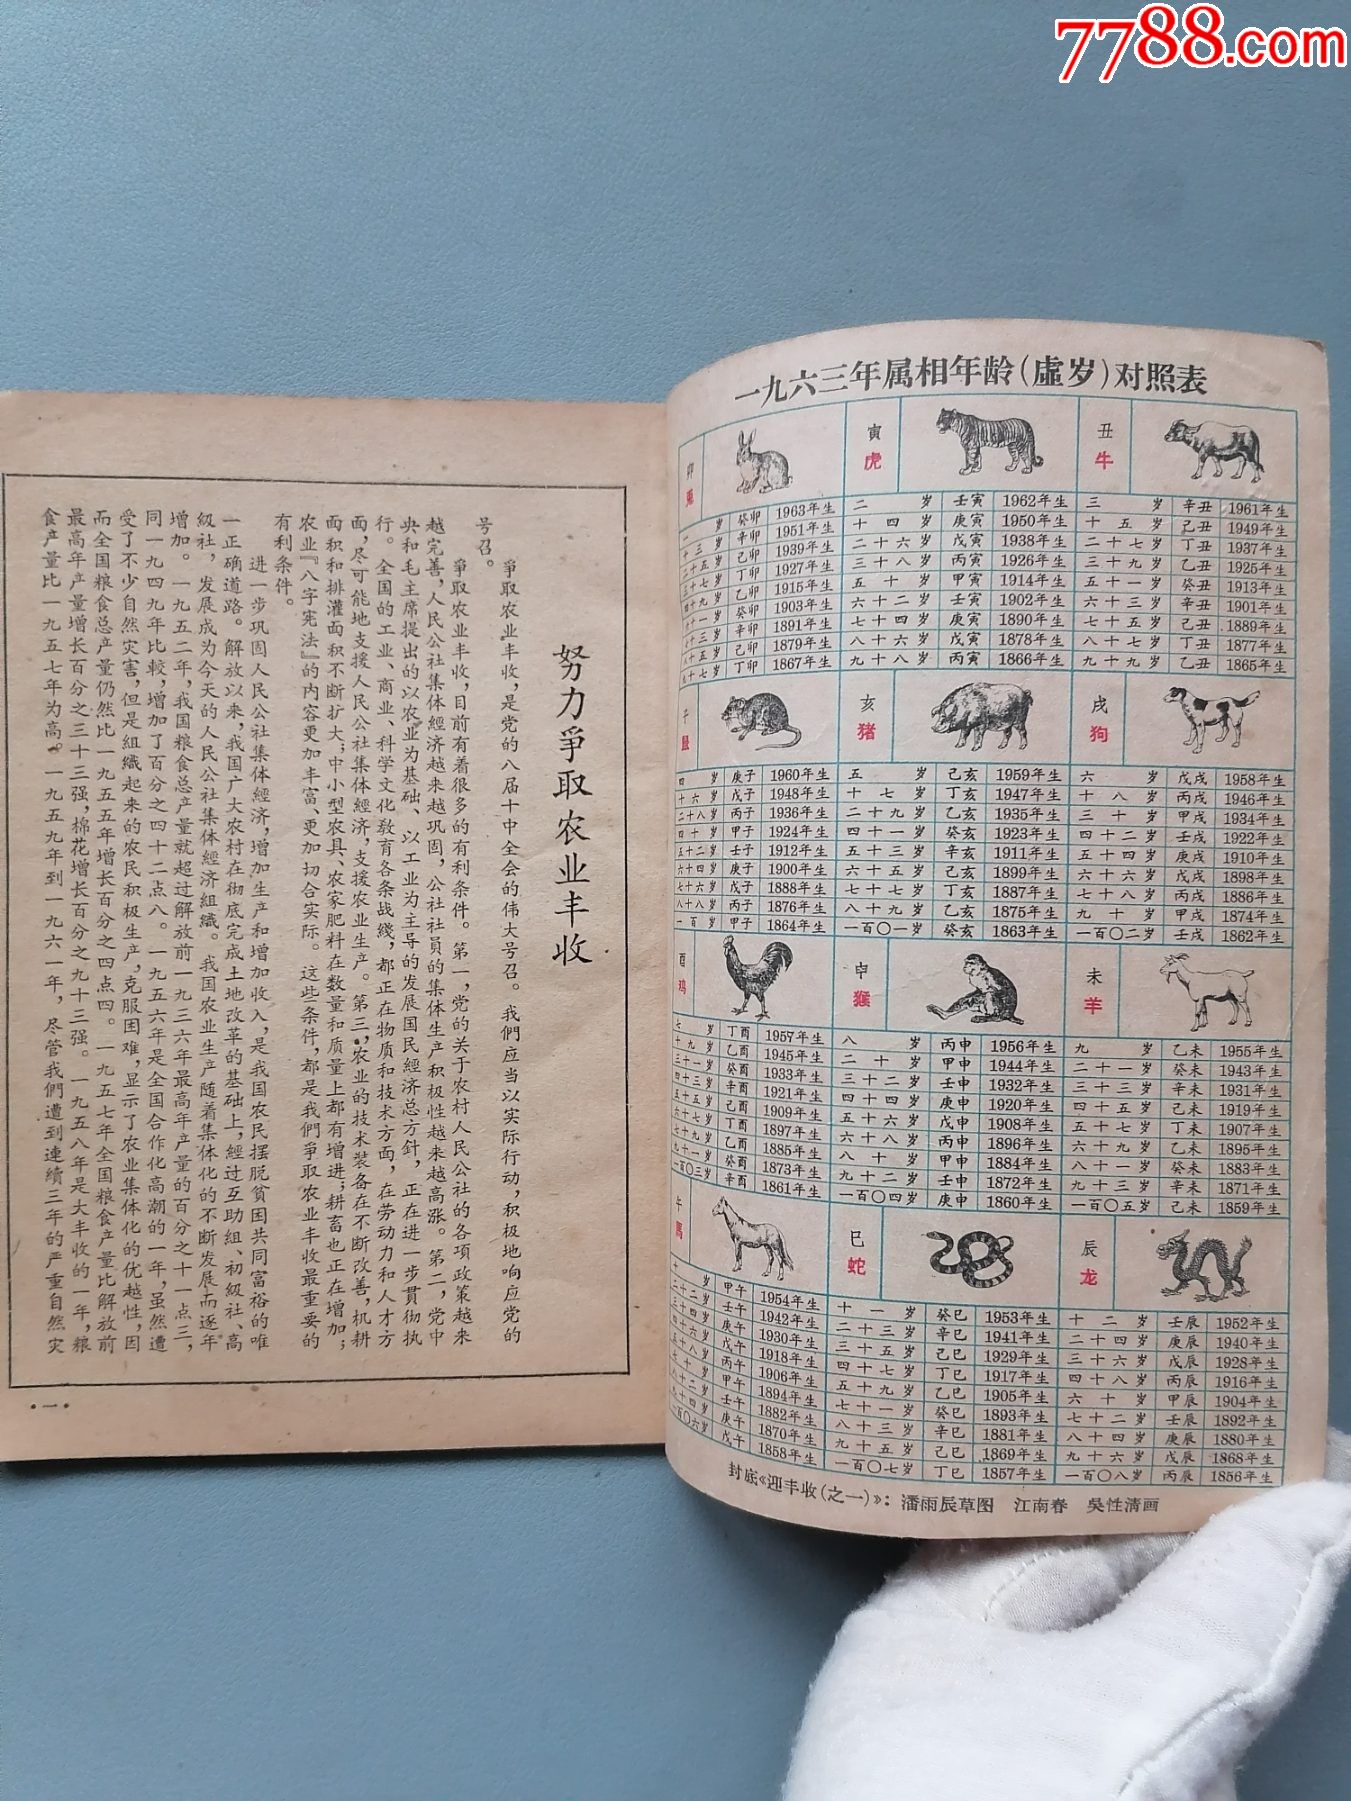 7788.com
一九六三年属相年龄(虛岁)对照表
卯 兎 寅 虎 丑 牛
一岁 癸卯 1963年生 二岁 壬寅 1962年生 三岁 辛丑 1961年生
十三岁 辛卯 1951年生 十四岁 庚寅 1950年生 十五岁 己丑 1949年生
二十五岁 己卯 1939年生 二十六岁 戊寅 1938年生 二十七岁 丁丑 1937年生
三十七岁 丁卯 1927年生 三十八岁 丙寅 1926年生 三十九岁 乙丑 1925年生
四十九岁 乙卯 1915年生 五十岁 甲寅 1914年生 五十一岁 癸丑 1913年生
六十一岁 癸卯 1903年生 六十二岁 壬寅 1902年生 六十三岁 辛丑 1901年生
七十三岁 辛卯 1891年生 七十四岁 庚寅 1890年生 七十五岁 己丑 1889年生
八十五岁 己卯 1879年生 八十六岁 戊寅 1878年生 八十七岁 丁丑 1877年生
九十七岁 丁卯 1867年生 九十八岁 丙寅 1866年生 九十九岁 乙丑 1865年生
子 鼠 亥 猪 戌 狗
四岁 庚子 1960年生 五岁 己亥 1959年生 六岁 戊戌 1958年生
十六岁 戊子 1948年生 十七岁 丁亥 1947年生 十八岁 丙戌 1946年生
二十八岁 丙子 1936年生 二十九岁 乙亥 1935年生 三十岁 甲戌 1934年生
四十岁 甲子 1924年生 四十一岁 癸亥 1923年生 四十二岁 壬戌 1922年生
五十二岁 壬子 1912年生 五十三岁 辛亥 1911年生 五十四岁 庚戌 1910年生
六十四岁 庚子 1900年生 六十五岁 己亥 1899年生 六十六岁 戊戌 1898年生
七十六岁 戊子 1888年生 七十七岁 丁亥 1887年生 七十八岁 丙戌 1886年生
八十八岁 丙子 1876年生 八十九岁 乙亥 1875年生 九十岁 甲戌 1874年生
一百岁 甲子 1864年生 一百〇一岁 癸亥 1863年生 一百〇二岁 壬戌 1862年生
酉 鸡 申 猴 未 羊
七岁 丁酉 1957年生 八岁 丙申 1956年生 九岁 乙未 1955年生
十九岁 乙酉 1945年生 二十岁 甲申 1944年生 二十一岁 癸未 1943年生
三十一岁 癸酉 1933年生 三十二岁 壬申 1932年生 三十三岁 辛未 1931年生
四十三岁 辛酉 1921年生 四十四岁 庚申 1920年生 四十五岁 己未 1919年生
五十五岁 己酉 1909年生 五十六岁 戊申 1908年生 五十七岁 丁未 1907年生
六十七岁 丁酉 1897年生 六十八岁 丙申 1896年生 六十九岁 乙未 1895年生
七十九岁 乙酉 1885年生 八十岁 甲申 1884年生 八十一岁 癸未 1883年生
九十一岁 癸酉 1873年生 九十二岁 壬申 1872年生 九十三岁 辛未 1871年生
一百〇三岁 辛酉 1861年生 一百〇四岁 庚申 1860年生 一百〇五岁 己未 1859年生
午 馬 巳 蛇 辰 龙
十岁 甲午 1954年生 十一岁 癸巳 1953年生 十二岁 壬辰 1952年生
二十二岁 壬午 1942年生 二十三岁 辛巳 1941年生 二十四岁 庚辰 1940年生
三十四岁 庚午 1930年生 三十五岁 己巳 1929年生 三十六岁 戊辰 1928年生
四十六岁 戊午 1918年生 四十七岁 丁巳 1917年生 四十八岁 丙辰 1916年生
五十八岁 丙午 1906年生 五十九岁 乙巳 1905年生 六十岁 甲辰 1904年生
七十岁 甲午 1894年生 七十一岁 癸巳 1893年生 七十二岁 壬辰 1892年生
八十二岁 壬午 1882年生 八十三岁 辛巳 1881年生 八十四岁 庚辰 1880年生
九十四岁 庚午 1870年生 九十五岁 己巳 1869年生 九十六岁 戊辰 1868年生
一百〇六岁 戊午 1858年生 一百〇七岁 丁巳 1857年生 一百〇八岁 丙辰 1856年生
封底《迎丰收(之一)》: 潘雨辰草图 江南春 吳性清画
努力爭取农业丰收
爭取农业丰收,是党的八届十中全会的伟大号召。我們应当以实际行动,积极地响应党的
号召。
爭取农业丰收,目前有着很多的有利条件。第一,党的关于农村人民公社的各项政策越来
越完善,人民公社集体經济越来越巩固,公社社員的集体生产积极性越来越高涨。第二,党中
央和毛主席提出的以农业为基础、以工业为主导的发展国民經济总方針,正在进一步貫彻执
行。全国的工业、商业、科学文化教育各条战綫,都正在物质和技术方面,在劳动力和人才方
面,尽可能地支援人民公社集体經济,支援农业生产。第三,农业的技术装备在不断改善,机耕
面积和排灌面积不断扩大;中小型农具、农家肥料在数量和质量上都有增进;耕畜也正在增加;
农业『八字宪法』的內容更加丰富、更加切合实际。这些条件,都是我們爭取农业丰收最重要的
有利条件。
进一步巩固人民公社集体經济,增加生产和增加收入,是我国农民摆脱貧困共同富裕的唯
一正确道路。解放以来,我国广大农村在彻底完成土地改革的基础上,經过互助組、初級社、高
級社,发展成为今天的人民公社集体經济組織。我国农业生产随着集体化的不断发展而逐年
增加。一九五二年,我国粮食总产量就超过解放前一九三六年最高年产量的百分之十一点三,
同一九四九年比較,增加了百分之四十二点八。一九五六年是全国合作化高潮的一年,虽然遭
受了不少自然灾害,但是組織起来的农民积极生产,克服困难,显示了农业集体化的优越性,因
而全国粮食总产量仍然比一九五五年增长百分之四点四。一九五七年全国粮食产量比解放前
最高年产量增长百分之三十三强,棉花增长百分之九十三强。一九五八年是大丰收的一年,粮
食产量比一九五七年为高。一九五九年到一九六一年,尽管我們遭到連續三年的严重自然灾
·一·